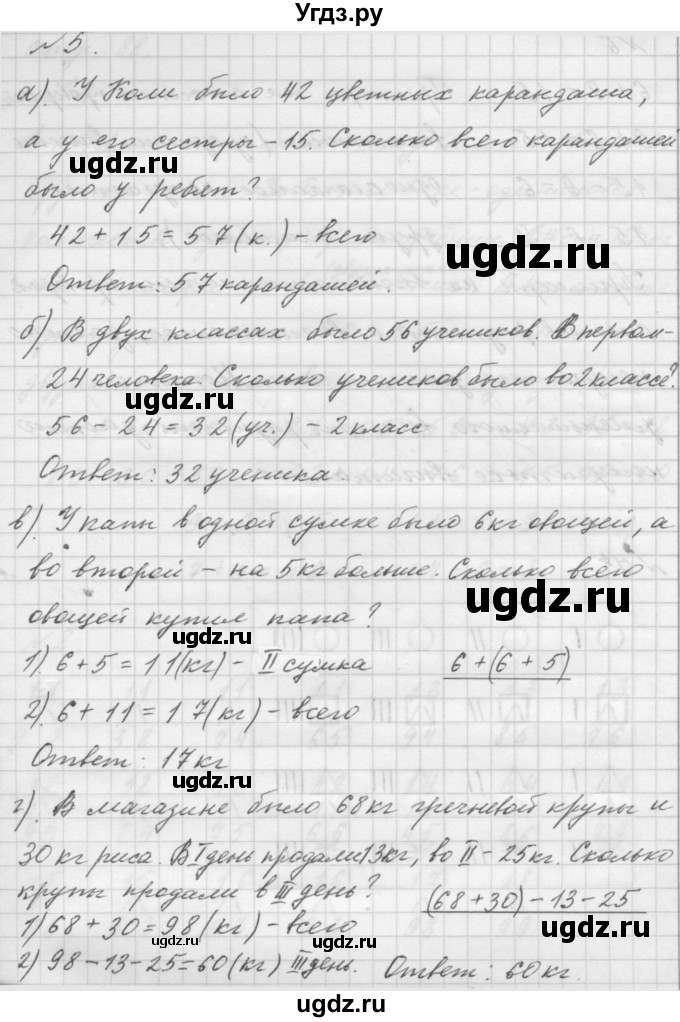 Угдз.ру
№5.
а). У Коли было 42 цветных карандаша,
а у его сестры - 15. Сколько всего карандашей
было у ребят?
42 + 15 = 57 (к.) - всего
Ответ: 57 карандашей.
б). В двух классах было 56 учеников. В первом-
24 человека. Сколько учеников было во 2 классе?
56 - 24 = 32 (уч.) - 2 класс
Ответ: 32 ученика
в). У папы в одной сумке было 6 кг овощей, а
во второй - на 5 кг больше. Сколько всего
овощей купил папа?
1). 6 + 5 = 11 (кг) - II сумка 6 + (6 + 5)
2). 6 + 11 = 17 (кг) - всего
Ответ: 17 кг
г). В магазине было 68 кг гречневой крупы и
30 кг риса. В I день продали 13 кг, во II - 25 кг. Сколько
крупы продали в III день? (68 + 30) - 13 - 25
1) 68 + 30 = 98 (кг) - всего
2) 98 - 13 - 25 = 60 (кг) III день. Ответ: 60 кг.
ugdz.ru
ugdz.ru
ugdz.ru
ugdz.ru
ugdz.ru
ugdz.ru
ugdz.ru
ugdz.ru
ugdz.ru
ugdz.ru